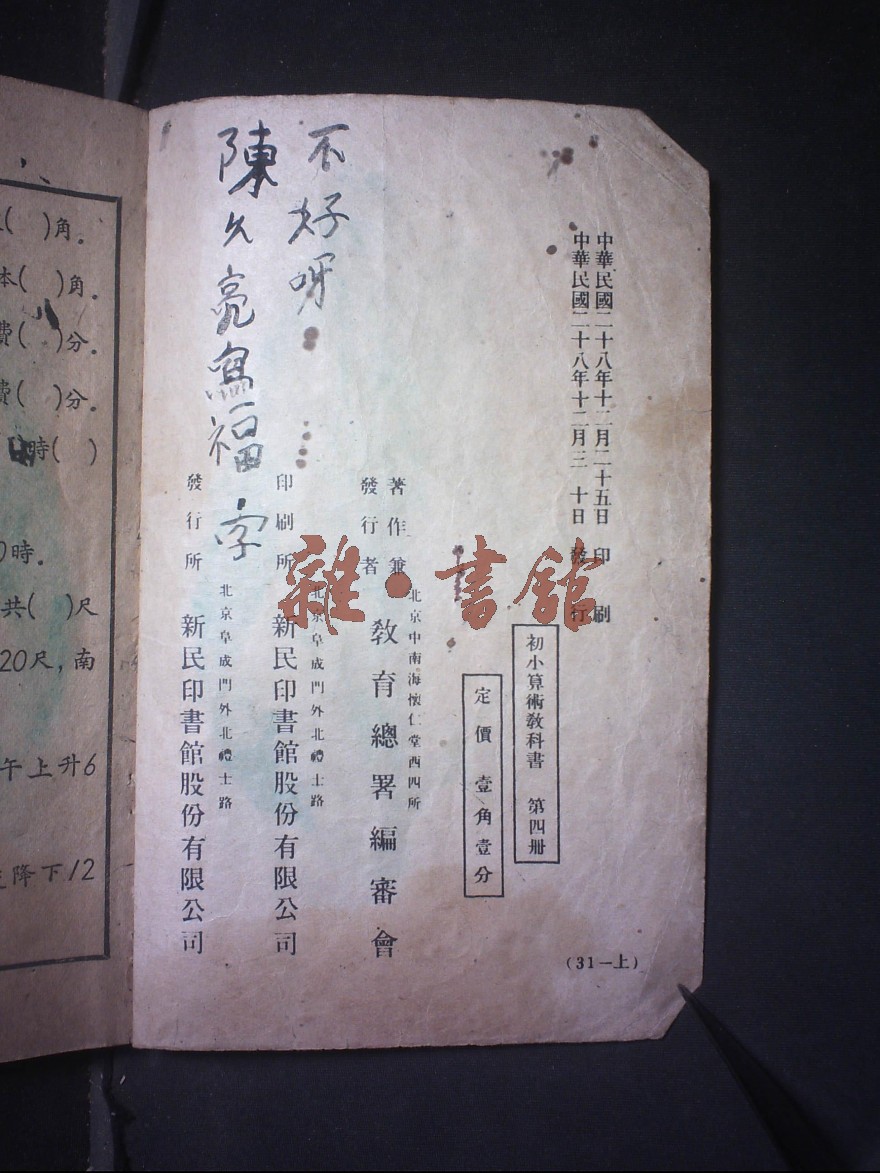 中華民國二十八年十二月二十五日印刷
中華民國二十八年十二月三十日發行
初小算術教科書 第四册
定價壹角壹分
著作兼
發行者
北京中南海懷仁堂西四所
教育總署編審會
印刷所
北京阜成門外北禮士路
新民印書館股份有限公司
發行所
北京阜成門外北禮士路
新民印書館股份有限公司
(31—上)
不好呀
陳久亮寫福字
雜·書館
( )角.
本( )角.
費( )分.
費( )分.
時( )
0時.
共( )尺
20尺,南
午上升6
降下12